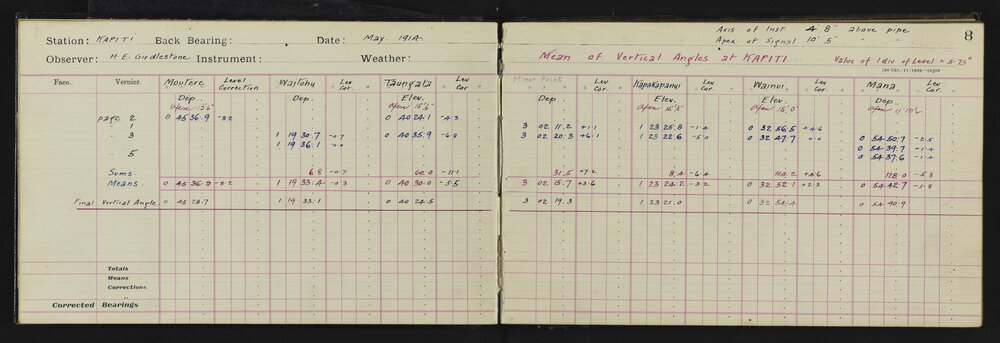 Axis of Inst 4' 8" above pipe
Apex of Signal 10' 5" " "
8
Station: KAPITI Back Bearing: Date: May. 1914.
Observer: H.E. Girdlestone Instrument: Weather:
Mean of Vertical Angles at KAPITI Value of 1 div of Level = 5.73"
Face. Vernier. Moutere Level Correction Waitohu Lev Cor. Taungata Lev Cor
Minor Point Lev Cor. Kapakapanui Lev Cor. Wainui Lev Cor. Mana Lev Cor.
Dep. Dep. Elev. Dep. Elev. Elev. Dep.
page 2 0 45 36.9 -8.2 0 40 24.1 -4.3
1 3 02 11.2 +1.1 1 23 25.8 -1.4 0 32 56.5 +4.6
" 3 1 19 30.7 -0.7 0 40 35.9 -6.8 3 02 20.3 +6.1 1 23 22.6 -5.0 0 32 47.7 0.0 0 54 50.7 -2.5
1 19 36.1 0.0 0 54 39.7 -1.4
" 5 0 54 37.6 -1.4
Sums 6.8 -0.7 60.0 -11.1 31.5 +7.2 8.4 -6.4 104.2 +4.6 128.0 -5.3
Means. 0 45 36.9 -8.2 1 19 33.4 -0.3 0 40 30.0 -5.5 3 02 15.7 +3.6 1 23 24.2 -3.2 0 32 52.1 +2.3 0 54 42.7 -1.8
Final Vertical Angle 0 45 28.7 1 19 33.1 0 40 24.5 3 02 19.3 1 23 21.0 0 32 54.4 0 54 40.9
Totals
Means
Corrections
Corrected Bearings